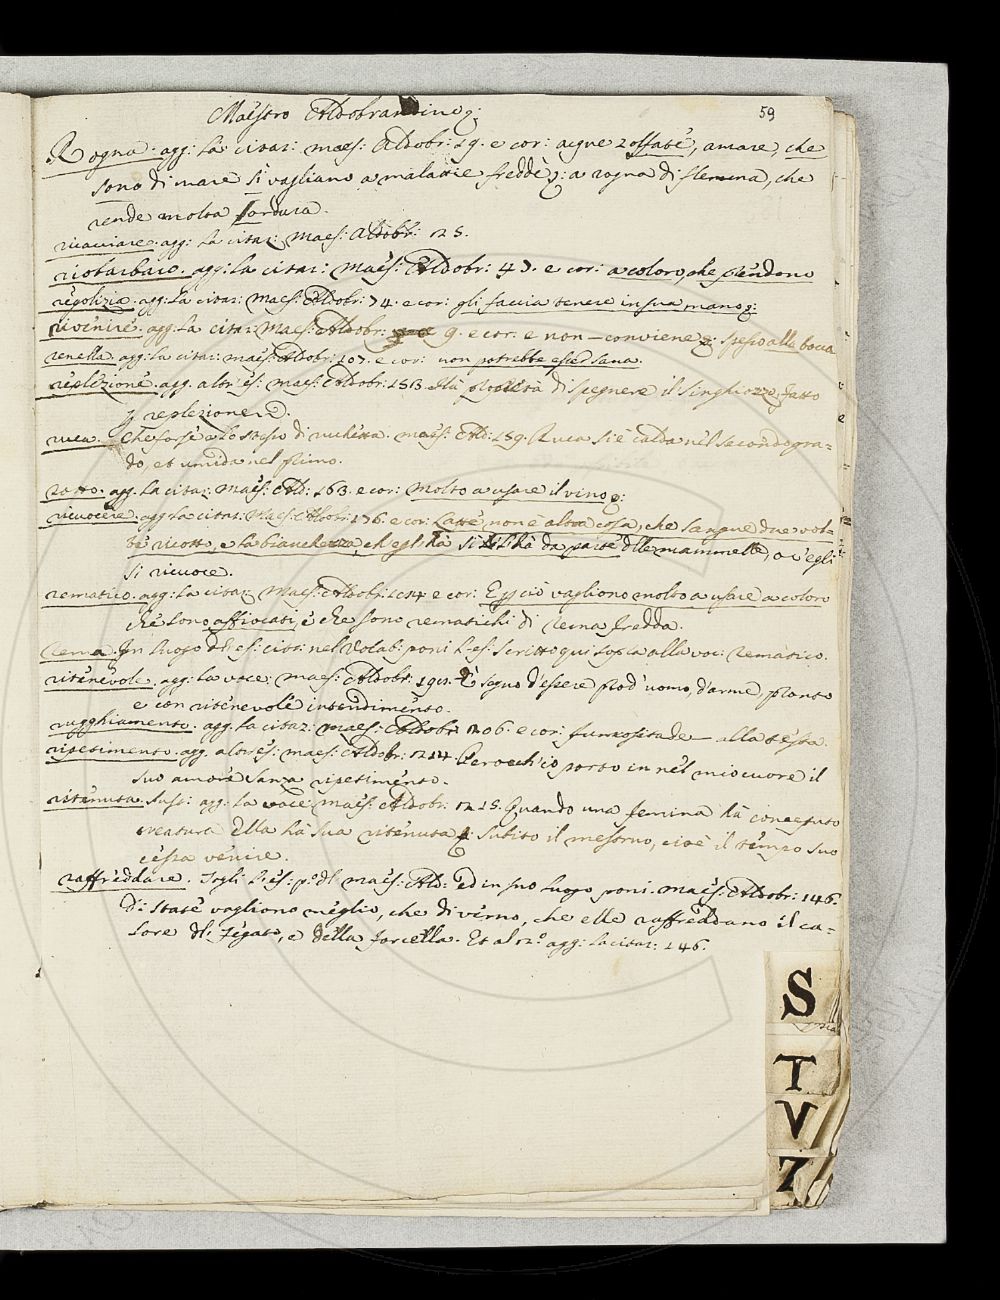 59
Maestro Aldobrandino
Rogna. agg: la citaz: maes: Aldobr: 19. e cor: acque zolfate, amare, che
sono di mare si vagliano a malattie fredde, a rogna di flemma, che
rende molta lordura.
ricacciare. agg: la citaz: Maes: Aldobr: 125.
riobarbaro. agg: la citaz: Maes: Aldobr: 47. e cor: a coloro, che prendono
regolizia. agg: la citaz: Maes: Aldobr: 74. e cor: gli faccia tenere in sua mano
rivenire. agg: la citaz: Maes: Aldobr: 9. e cor. e non conviene spesso alla bocca
renella. agg: la citaz: maes: Aldobr: 107. e cor: non potrebbe esser sana.
replezione. agg. altr'es: maes: Aldobr: 153. Ha proprietà di spegnere il singhiozzo fatto
p replezione.
ruca. Che forse è lo stesso di ruchetta. maes: Ald: 159. Ruca si è calda nel secondo gra-
do, et umida nel primo.
rotto. agg. la citaz: Maes: Ald: 163. e cor: Molto a usare il vino
ricuocere. agg: la citaz: Maes: Aldobr: 176. e cor: Latte non è altra cosa, che sangue due vol-
te ricotto, e la bianchezza, ch'egli ha si ha da parte dlle mammelle, ov'egli
si ricuoce.
rematico. agg: la citaz: Maes: Aldobr: e cor: E ciò vagliono molto a usare a coloro
che sono affiocati, e che sono rematichi di rema fredda.
rema. In luogo dl es: cit: nel Vocab: poni l'es: scritto qui sopra alla voc: rematico.
ritenevole. agg: la voce: maes: Aldobr: È segno d'essere prod'uomo, d'arme, pronto
e con ritenevole intendimento.
rugghiamento. agg. la citaz. maes: Aldobr: 206. e cor: fumositade alla testa.
ripetimento. agg. altr'es: maes: Aldobr: 1214. Perocch'io porto in nel mio cuore il
suo amore sanza ripetimento.
ritenuta. Sust: agg. la voce maes: Aldobr: Quando una femina ha conceputo
creatura ella ha sua ritenuta subito il mestruo, cioè il tempo suo
cessa venire.
raffreddare. Togli l'es: p.º dl maes: Ald: ed in suo luogo poni. Maes: Aldobr: 146.
Di state vagliono meglio, che di verno, che elle raffreddano il ca-
lore dl fegato, e della forcella. Et al 2.º agg: la citaz: 146.
S
T
V
Z